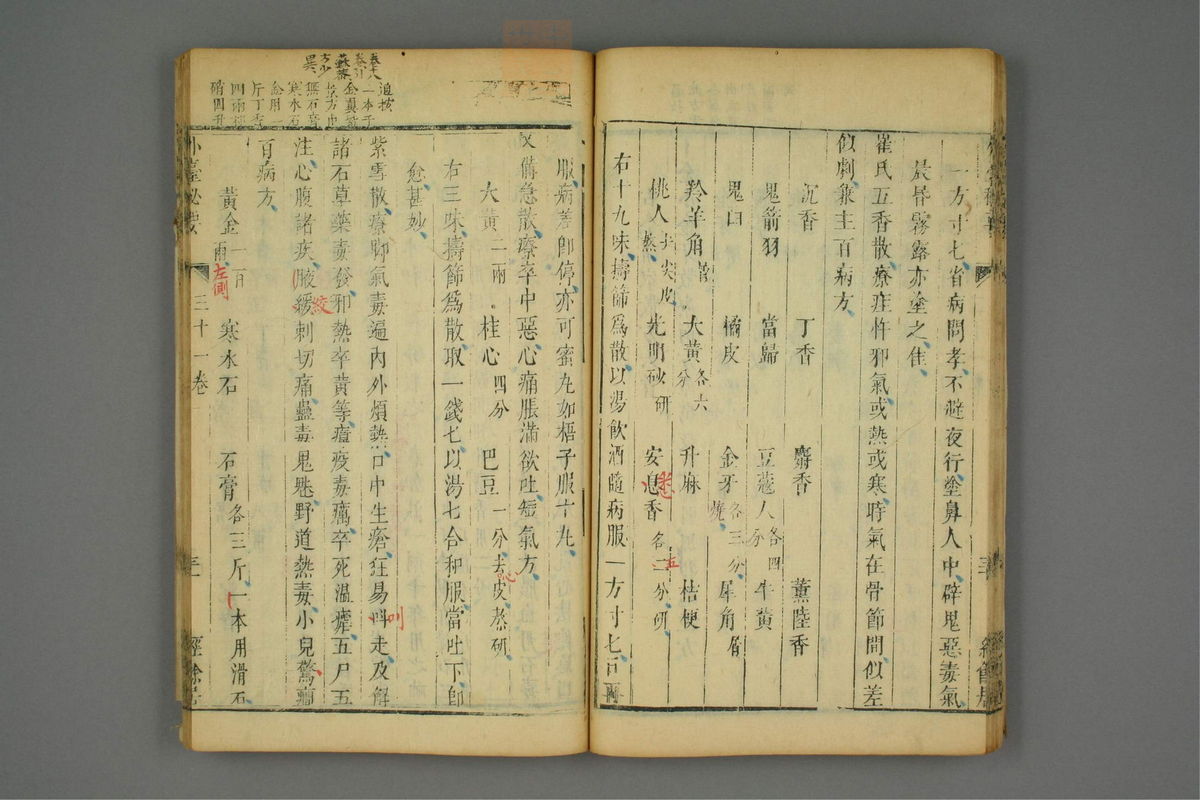 一方寸七省病問孝不避夜行塗鼻人中辟鬼惡毒氣
晨昏霧露亦塗之佳
崔氏五香散療疰忤邪氣或熱或寒時氣在骨節間似差
似劇兼主百病方
沉香 丁香 麝香 薰陸香
鬼箭羽 當歸 豆蔻人各四分 牛黃
鬼臼 橘皮 金牙燒各三分 犀角屑
羚羊角 大黃各六分 升麻 桔梗
桃人去尖皮熬 光明砂研 安息香各二分研
右十九味擣篩爲散以湯飲酒隨病服一方寸七
服病差即停亦可蜜丸如梧子服十丸
又備急散療卒中惡心痛脹滿欲吐短氣方
大黃二兩 桂心四分 巴豆一分去皮熬研
右三味擣篩爲散取一錢七以湯七合和服當吐下即
愈甚妙
紫雪散療脚氣毒遍內外煩熱口中生瘡狂易叫走及解
諸石草藥毒發邪熱卒黃等瘴疫毒癘卒死溫瘧五尸五
注心腹諸疾腋緩刺切痛蠱毒鬼魅野道熱毒小兒驚癎
百病方
黃金一百兩 寒水石 石膏各三斤一本用滑石
外臺秘要
三十一卷
經餘居
左側
絞
叫
五